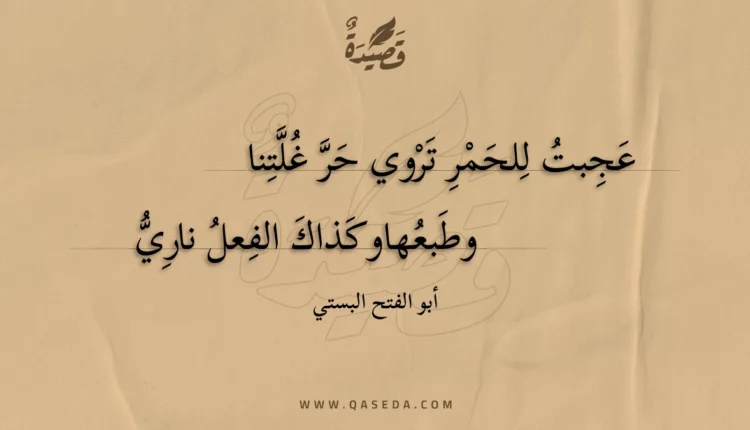 قَصِيْدَةٌ
عَجِبتُ لِلحَمْرِ تَرْوي حَرَّ غُلَّتِنا
وطَبعُهاوكَذاكَ الفِعلُ نارِيُّ
أبو الفتح البستي
WWW.QASEDA.COM